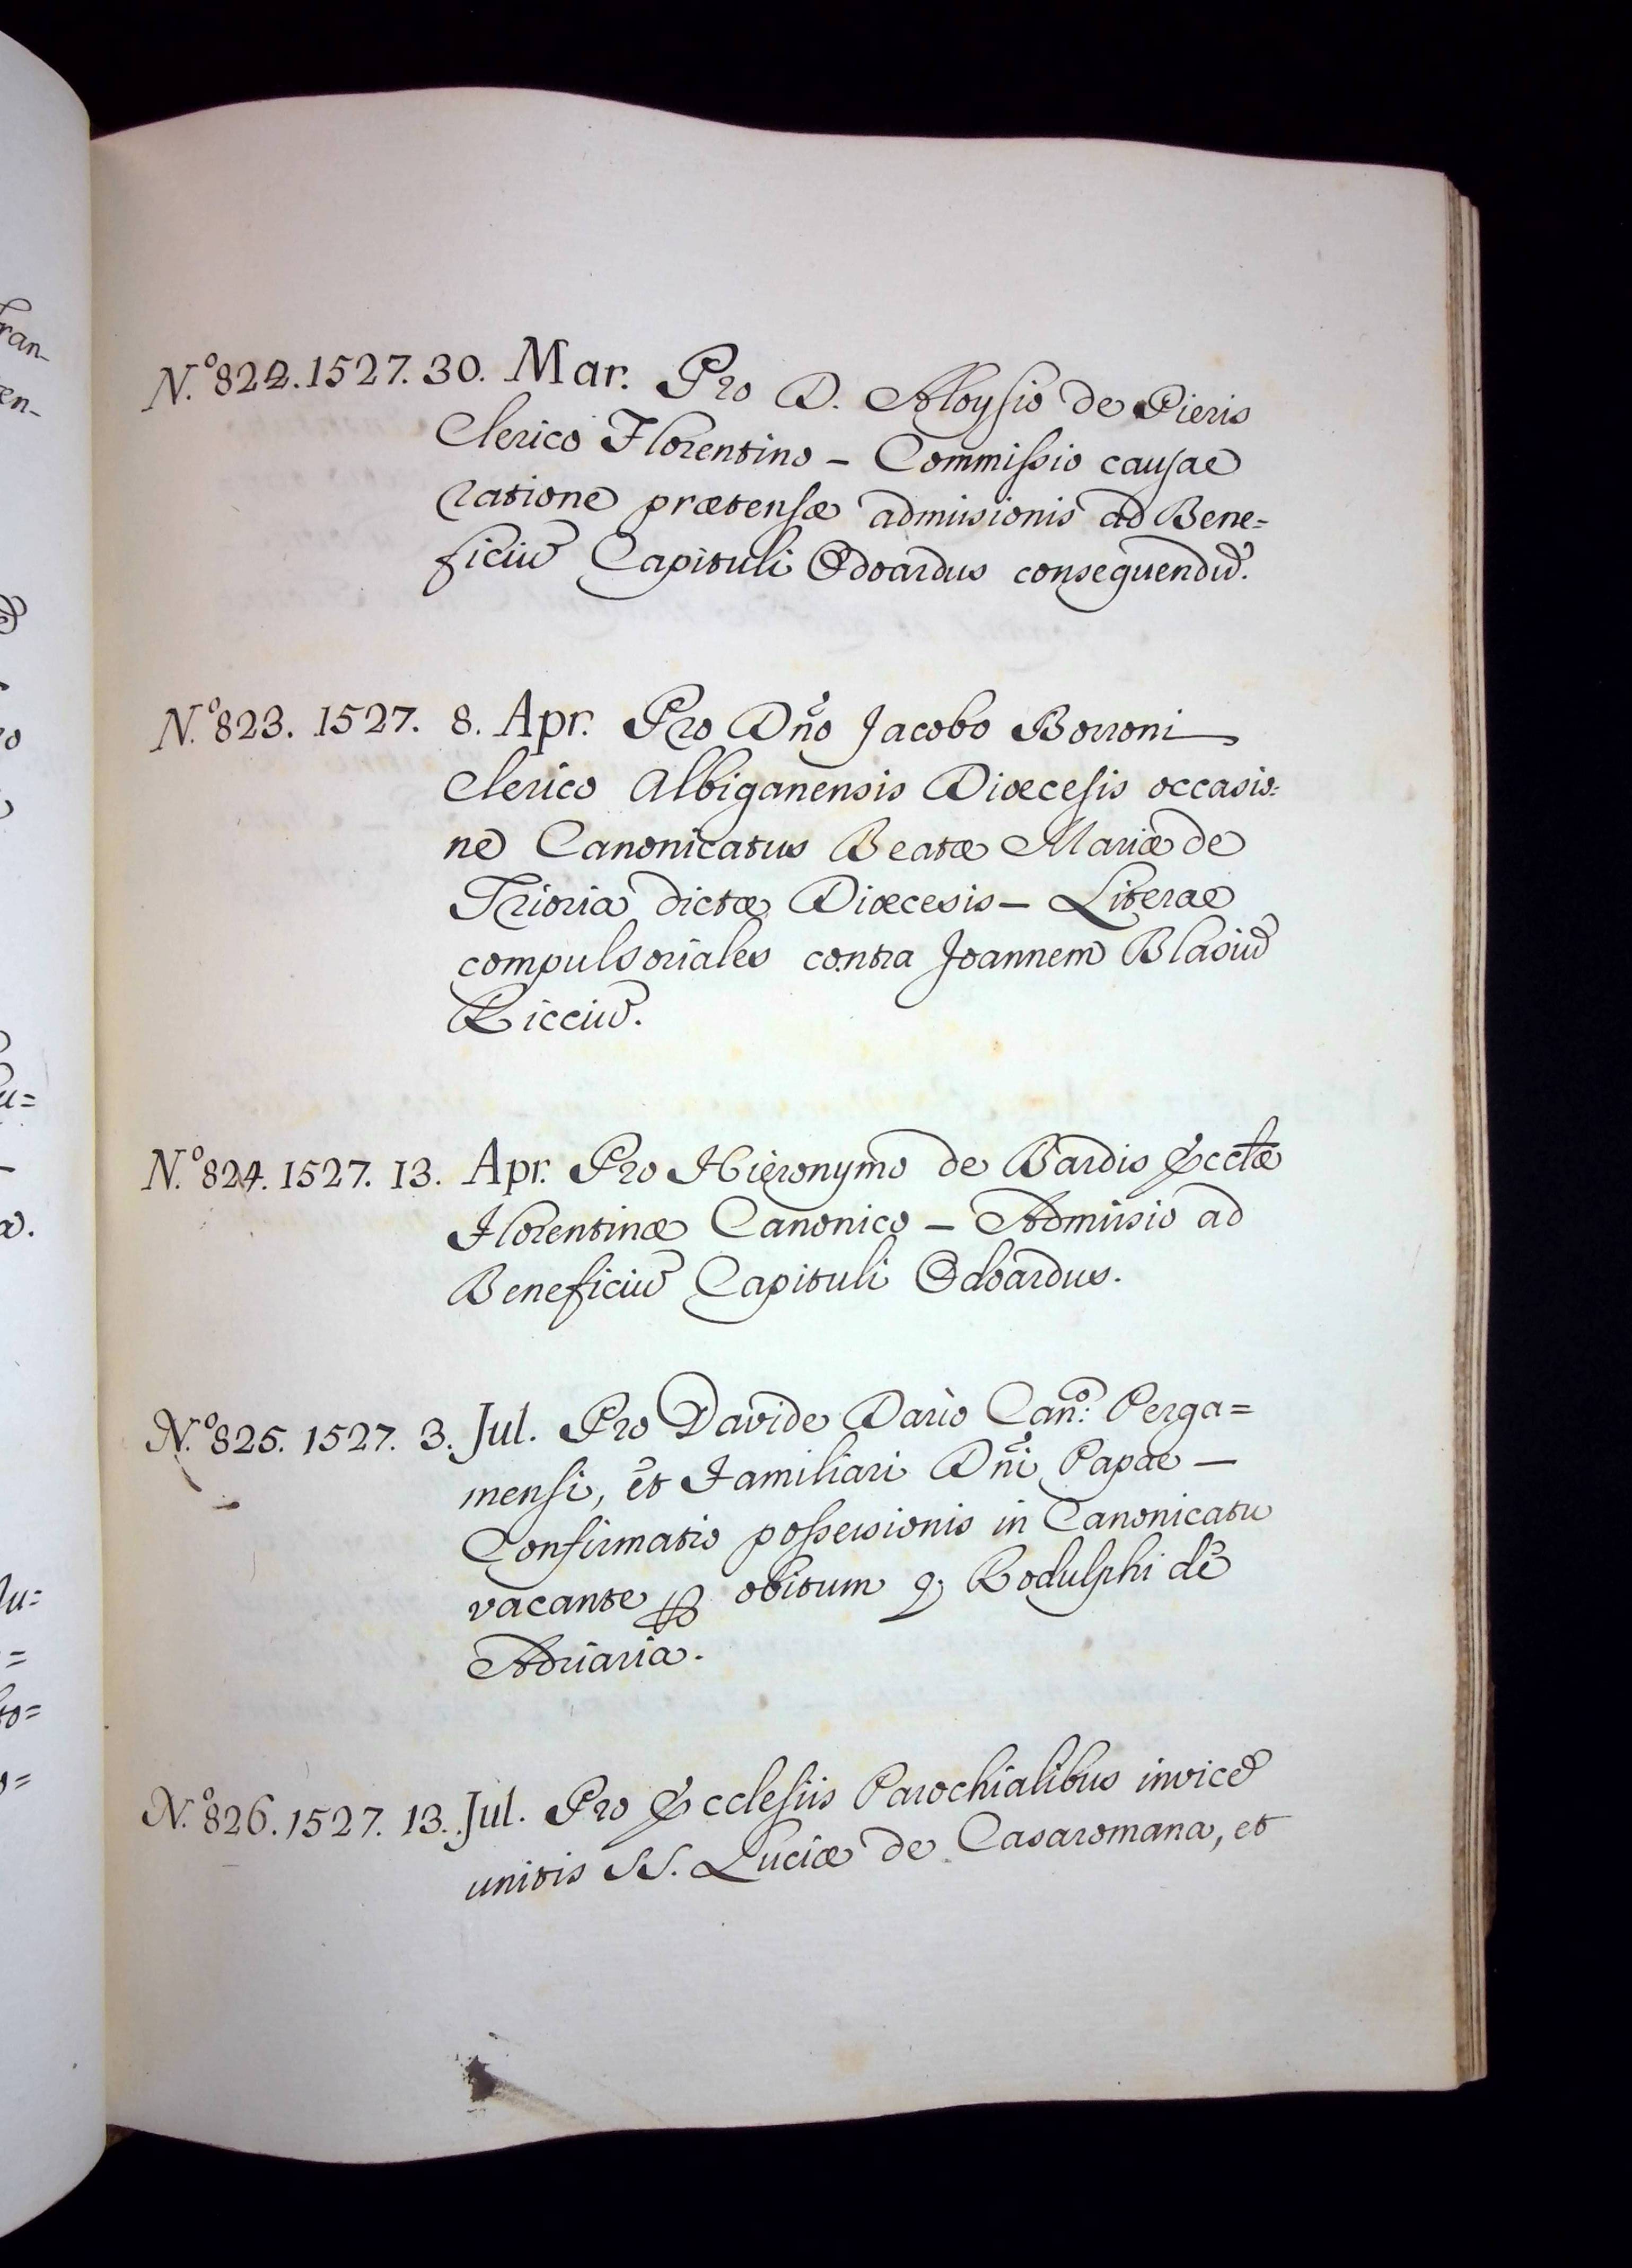 N.º 822. 1527. 30. Mar. Pro D. Aloysio de Pieris
Clerico Florentino – Commissio causae
ratione prætensæ admissionis ad Bene=
ficiū Capituli Odoardus consequendū.
N.º 823. 1527. 8. Apr. Pro Dño Jacobo Borroni
Clerico Albiganensis Diœcesis occasio=
ne Canonicatus Beatæ Mariæ de
Trioria dictæ Diœcesis – Literae
compulsoriales contra Joannem Blasiū
Ricciū.
N.º 824. 1527. 13. Apr. Pro Hieronymo de Bardis Ecclæ
Florentinæ Canonico – Admissio ad
Beneficiū Capituli Odoardus.
N.º 825. 1527. 3. Jul. Pro Davide Dario Canº: Perga=
mensi, et Familiari Dñi Papae –
Confirmatio possessionis in Canonicatu
vacante ꝑ obitum q; Rodulphi de
Adriaria.
N.º 826. 1527. 13. Jul. Pro Ecclesiis Parochialibus invicē
unitis SS. Luciæ de Casaromana, et